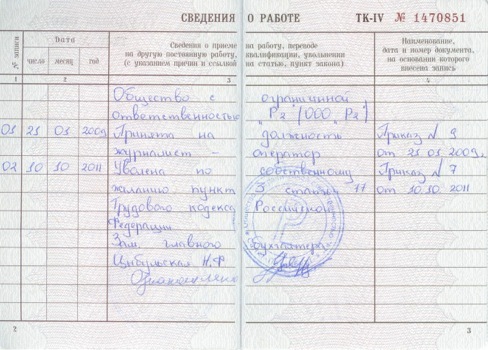 СВЕДЕНИЯ О РАБОТЕ ТК-IV № 1470851
№ записи
Дата
число месяц год
Сведения о приеме на работу, переводе
на другую постоянную работу, квалификации, увольнении
(с указанием причин и ссылкой на статью, пункт закона)
Наименование,
дата и номер документа,
на основании которого
внесена запись
1 2 3 4
Общество с ограниченной
ответственностью "Р2" (ООО "Р2")
Принята на должность Приказ №
журналист - оператор от
02 10 10 2011 Уволена по собственному Приказ № 7
желанию пункт 3 статьи от 10.10.2011
Трудового кодекса Российской
Федерации
Зам. главного бухгалтера
Цыбульская Н.Ф.
2 3